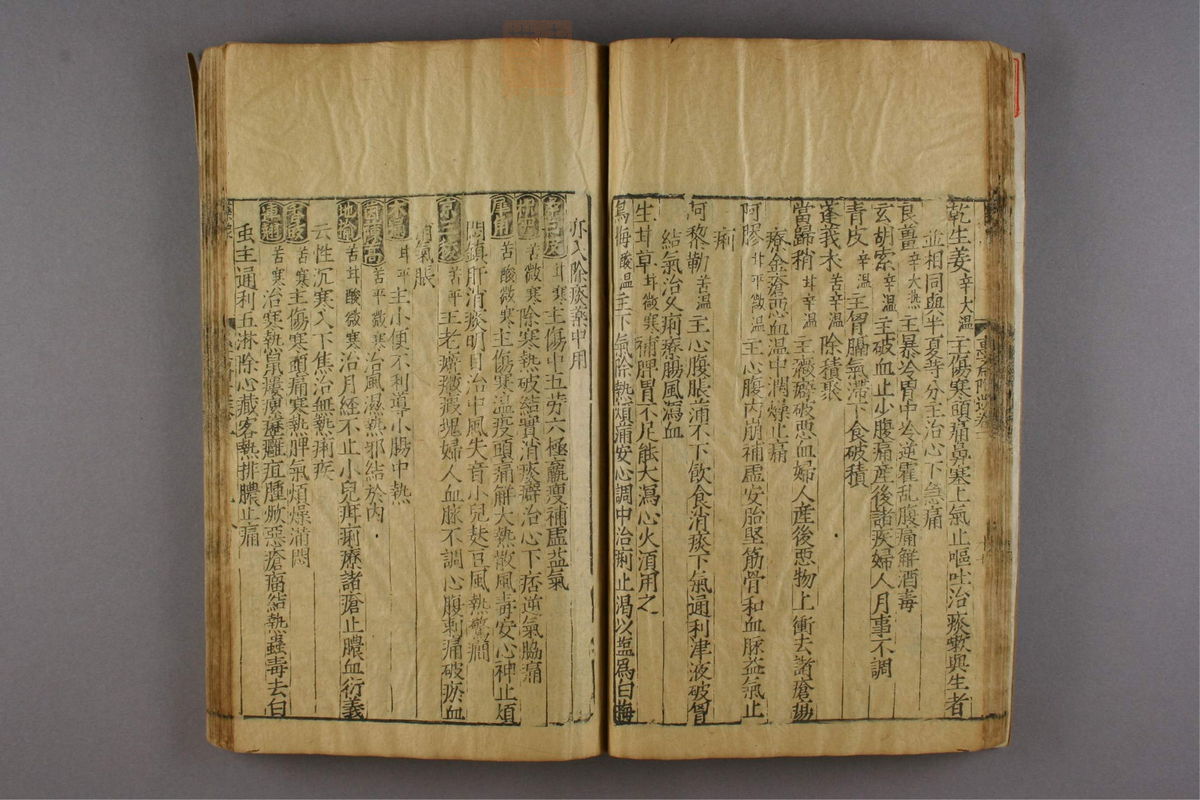 乾生姜辛大温主傷寒頭痛鼻塞上氣止嘔吐治痰嗽與生者
並相同與半夏等分主治心下急痛
良薑辛大熱主暴冷胃中岦逆霍乱腹痛解酒毒
玄胡索辛温主破血止少腹痛産後諸疾婦人月事不調
青皮辛温主胃膈氣滯下食破積
蓬莪朮苦辛温除積聚
當歸稍甘辛温主癥癖破惡血婦人産後惡物上衝去諸瘡瘍
療金瘡惡血温中潤燥止痛
阿膠甘平微温主心腹内崩補虚安胎堅筋骨和血脉益氣止
痢
訶黎勒苦温主心腹脹滿不下飲食消痰下氣通利津液破胃
結氣治久痢療腸風瀉血
生甘草甘微寒補脾胃不足能大瀉心火須用之
烏梅酸温主下氣除熱煩滿安心調中治痢止渴以盐爲白梅
亦入除痰藥中用
甘寒主傷中五劳六極羸瘦補虚益氣
苦微寒除寒熱破結實消痰癖治心下痞逆氣脇痛
犀角苦酸微寒主傷寒温疫頭痛解大熱散風毒安心神止煩
悶鎮肝消痰明目治中風失音小兒麸豆風熱驚癇
京三稜苦平主老癖癥瘕塊婦人血脉不調心腹刺痛破瘀血
消氣脹
木通甘平主小便不利導小腸中熱
苦平微寒治風濕熱邪結於内
地榆苦甘酸微寒治月經不止小兒疳痢療諸瘡止膿血衍義
云性沉寒入下焦治血熱痢疾
苦寒主傷寒頭痛寒熱脾氣煩燥滿悶
連翹苦寒治寒熱鼠瘻瘰癧癰疽腫惡瘡瘤結熱蠱毒去白
虫主通利五淋除心藏客熱排膿止痛